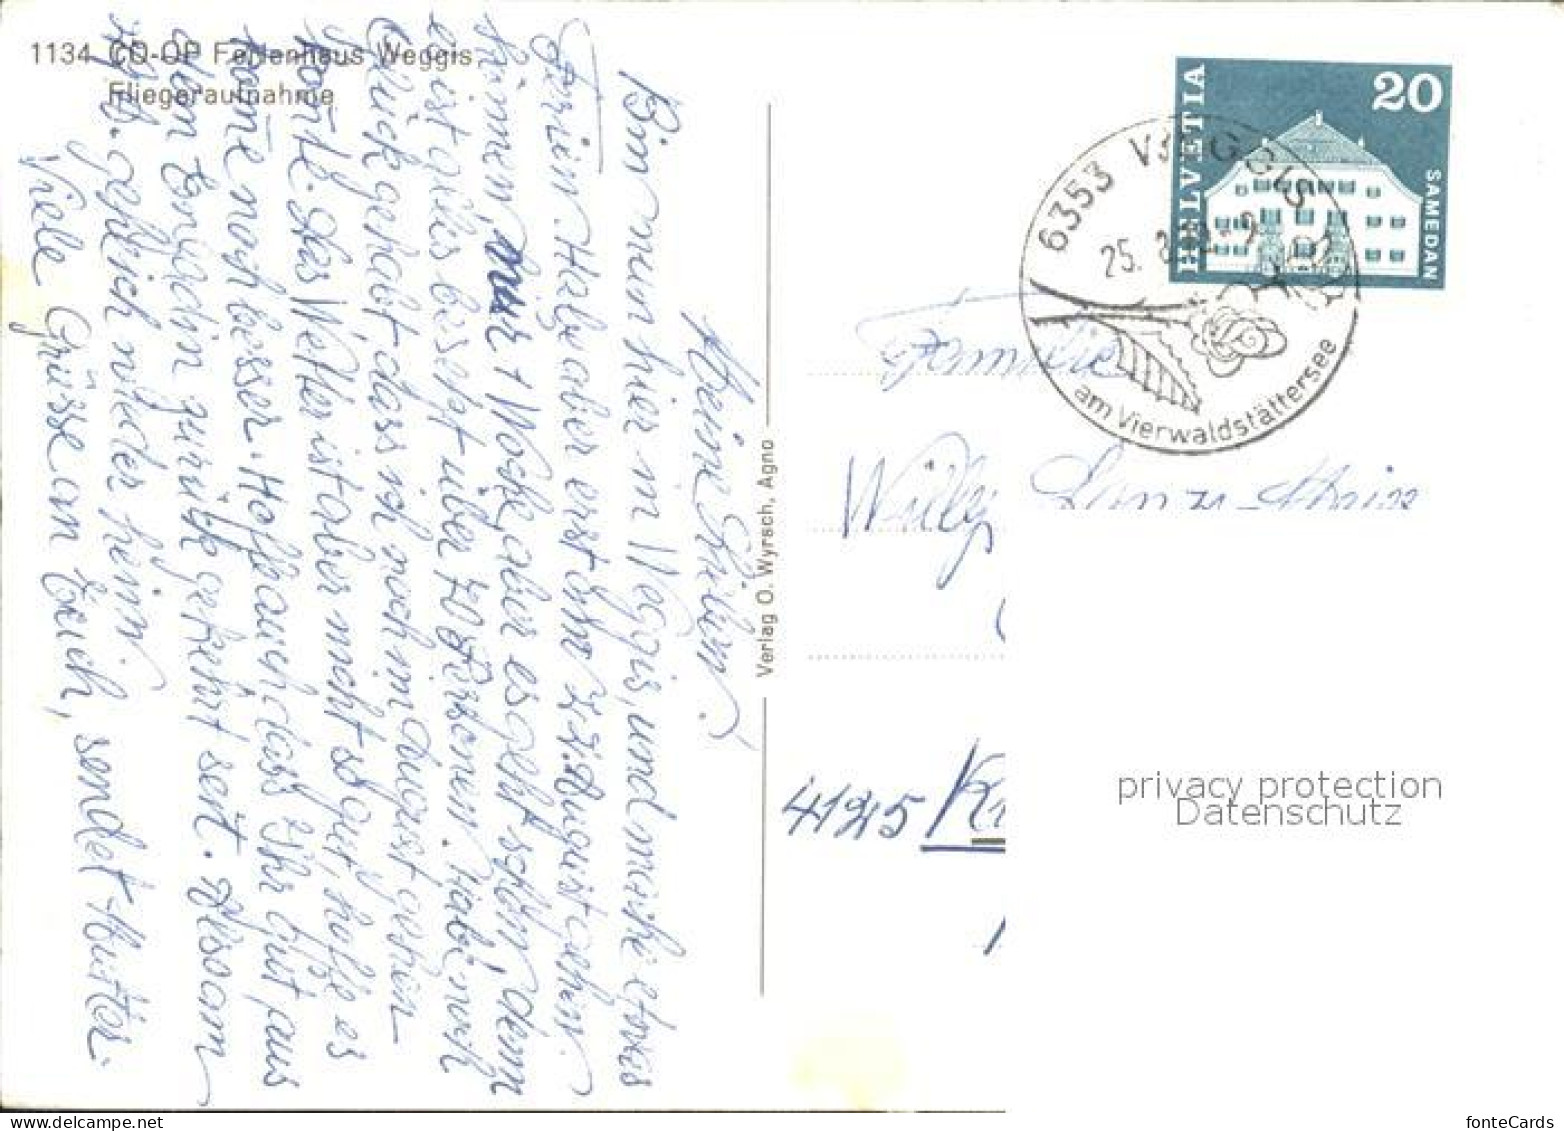 1134 CO-OP Ferienhaus Weggis
Fliegeraufnahme
Meine Lieben!
Bin nun hier in Weggis, und mache etwas
Ferien. Habe aber erst am 22. August gehen
können, nur 1 Woche, aber es geht schon, denn
es ist alles besetzt über 70 Personen. Habe noch
Glück gehabt dass ich noch im August gehen
konte. Das Wetter ist aber nicht so gut, hoffe es
komt noch besser. Hoffe auch dass Ihr gut aus
dem Engadin zurück gekehrt seit. Am
Sept. gehe ich wieder heim.
Viele Grüsse an Euch, sendet Mutter.
Verlag O. Wyrsch, Agno
HELVETIA
20
SAMEDAN
6353 WEGGIS
25. 8.
am Vierwaldstättersee
Familie
Willy
4125
privacy protection
Datenschutz
fonteCards